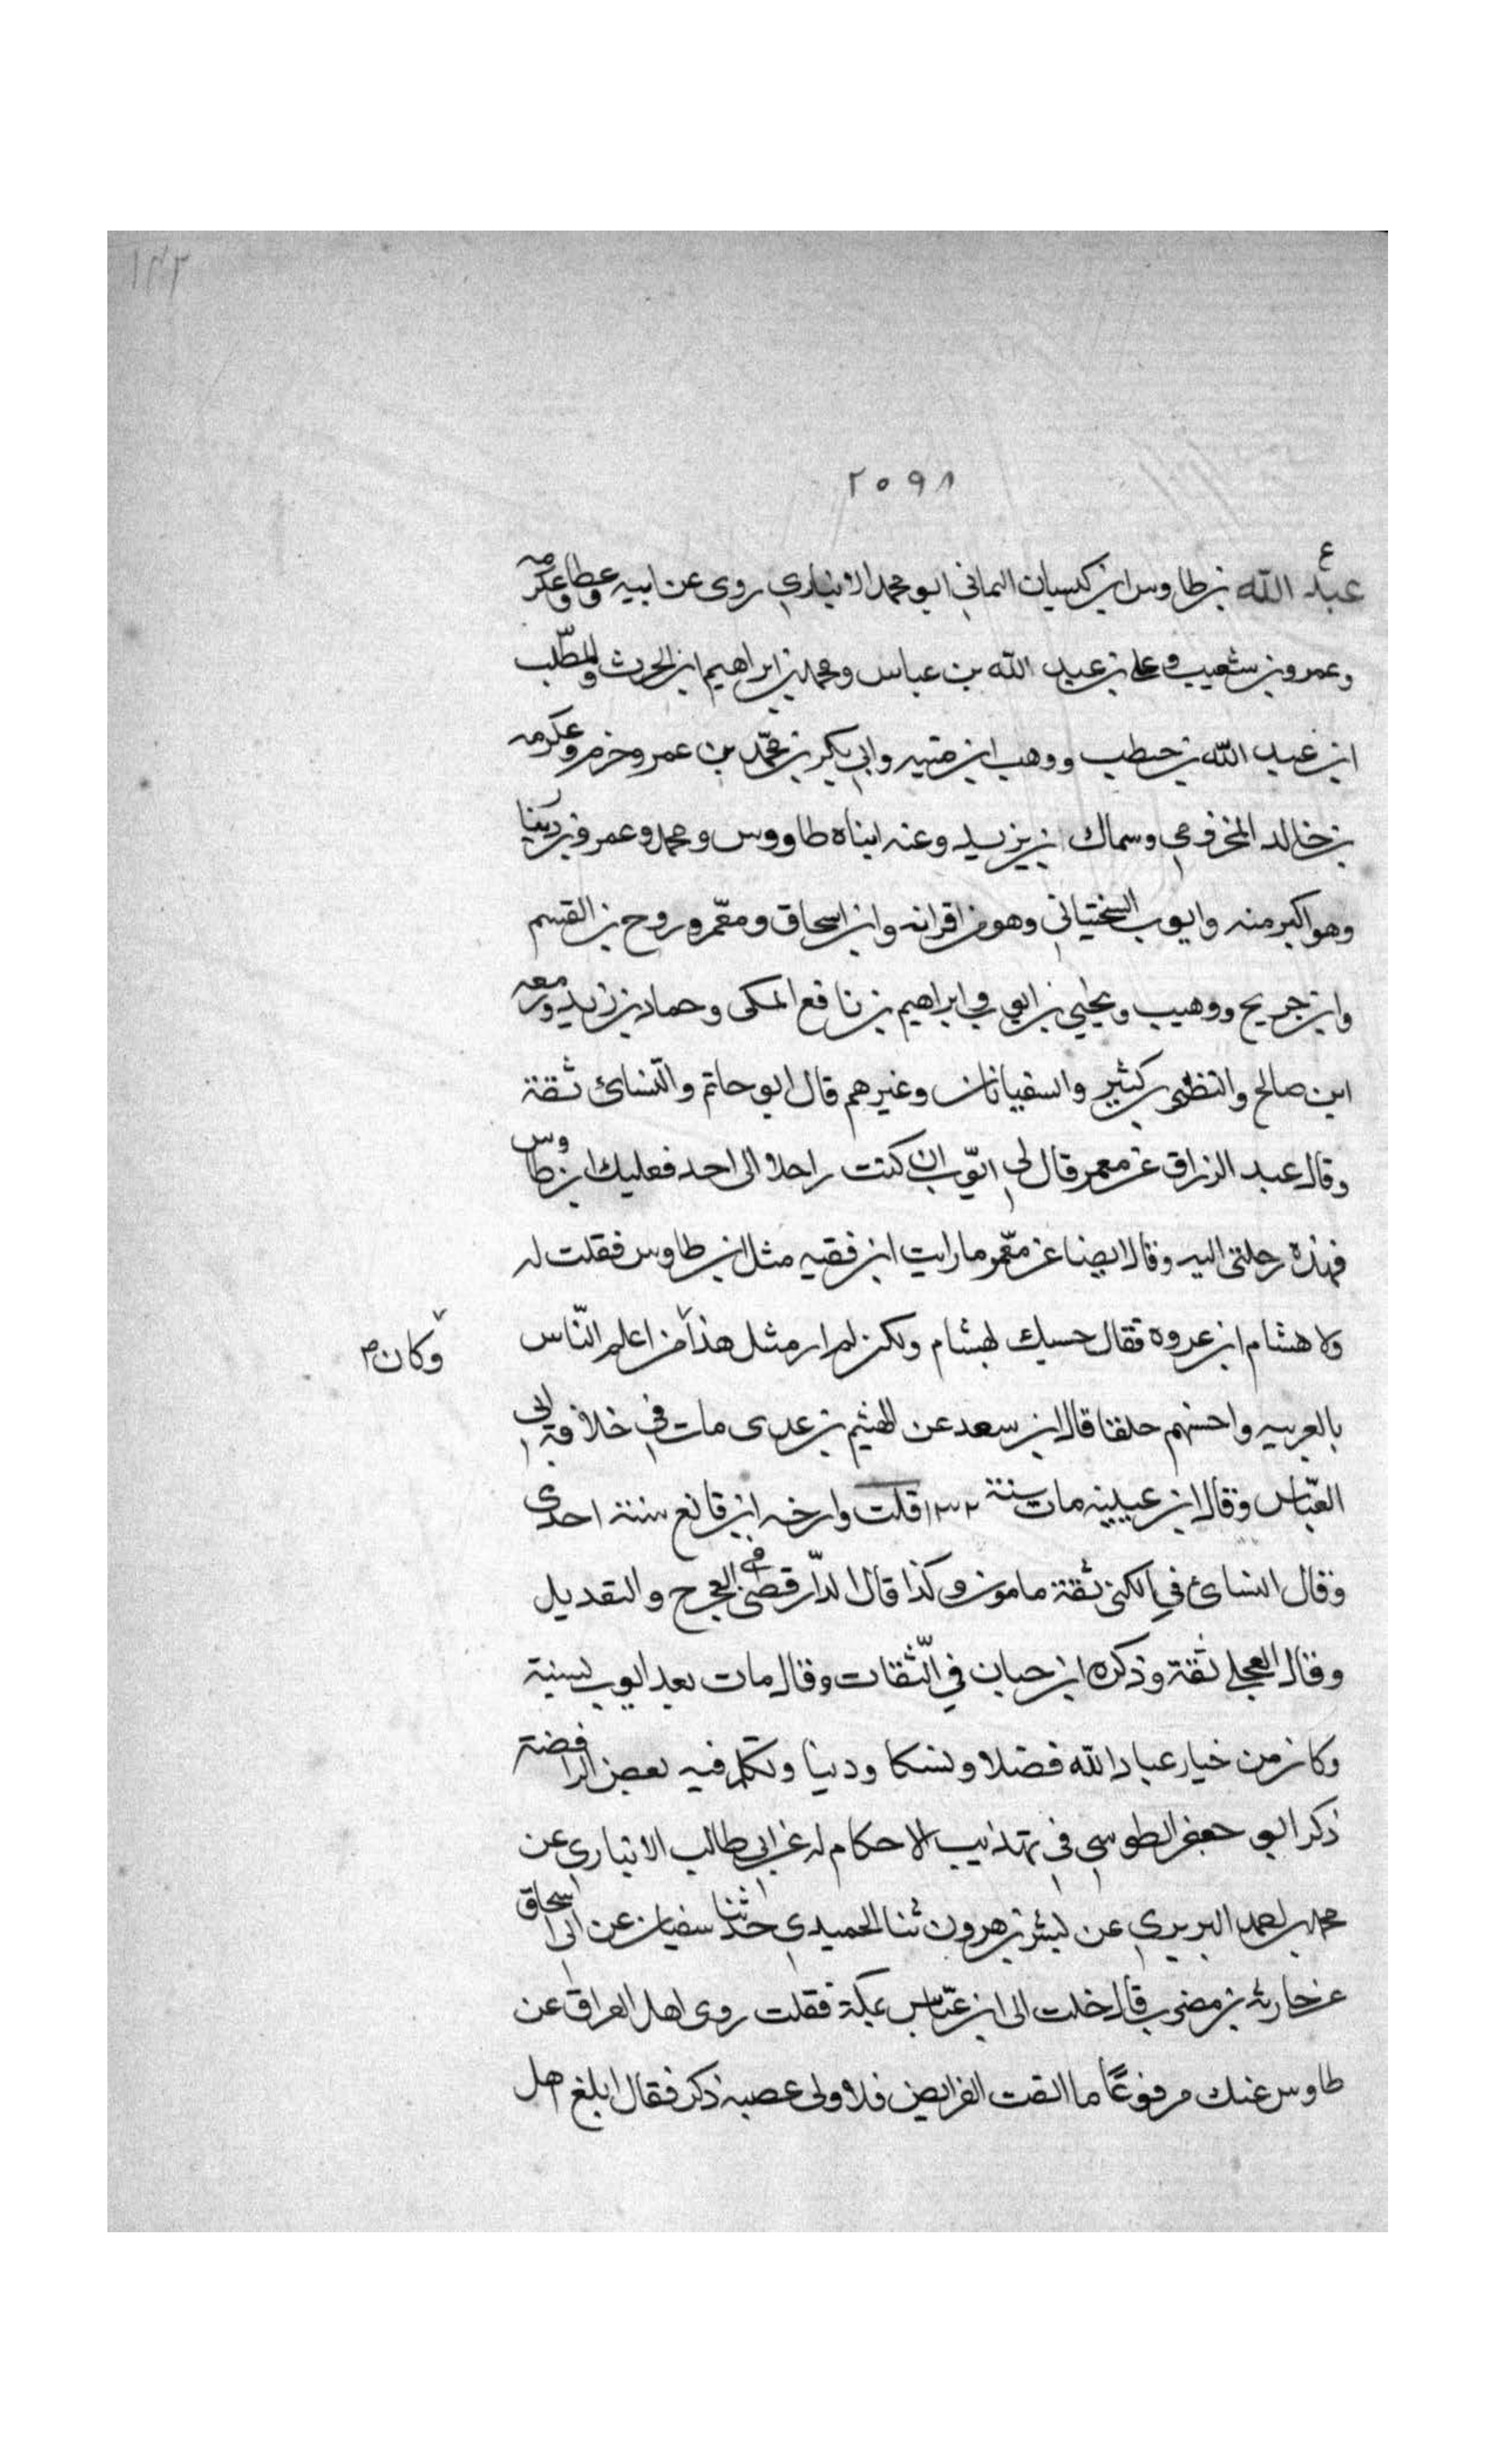 ١٤٢
٢٥٩٨
ع
عبد الله بن طاوس ابن كيسان اليماني ابو محمد الانباري روى عن ابيه وعطا وعكرمه
وعمرو بن شعيب وعلى بن عبد الله بن عباس ومحمد بن ابراهيم ابن الحرث والمطّلب
ابن عبد الله بن حنطب ووهب ابن منبه وابي بكر بن محمّد بن عمرو حزم وعكرمه
بن خالد المخزومي وسماك بن يزيد وعنه ابناه طاووس ومحمد وعمرو بن دينار
وهو اكبر منه وايوب السختياني وهو من اقرانه وابن اسحاق ومعمّر وروح بن القسم
وابن جريح ووهيب ويحيى بن ايوب وابراهيم بن نافع المكى وحماد بن زيد وزمعه
ابن صالح والنظر بن كثير والسفيانان وغيرهم قال ابو حاتم والنّسائ ثقة
وقال عبد الرزاق عن معمر قال لي ايّوب ان كنت راحلا الى احد فعليك ابن طاوس
فهذه رحلتى اليه وقال ايضا عن معّمر ما رايت ابن فقيه مثل ابن طاوس فقلت له
ولا هشام ابن عروه فقال حسبك لهشام ولكن لم ار مثل هذا من اعلم النّاس
وكان م
بالعربيه واحسنهم حلقنا قال ابن سعد عن الهيثم بن عدى مات في خلافة ابي
العبّاس وقال ابن عيينه مات سنة ١٣٢ قلت وارخه ابن قانع سنة احدى
وقال النسائ في الكنى ثقة مامون وكذا قال الدّارقطنى في الجرح والتعديل
وقال العجلى ثقة وذكره ابن حبان في الثّقات وقال مات بعد ايوب بسنة
وكان من خيار عباد الله فضلا ونسكا ودينا وتكلم فيه بعض الرافضة
ذكر ابو جعفر الطوسي في تهذيب الاحكام له عن ابي طالب الانبارى عن
محمد بن احمد البربري عن بشر بن هرون ثنا الحميدي حدثنا سفيان عن ابى اسحاق
عن حارثه بن مضرب قال دخلت الى ابن عبّاس بمكة فقلت روى اهل العراق عن
طاوس عنك مرفوعًا ما ابقت الفرايض فلاولى عصبه ذكر فقال ابلغ اهل